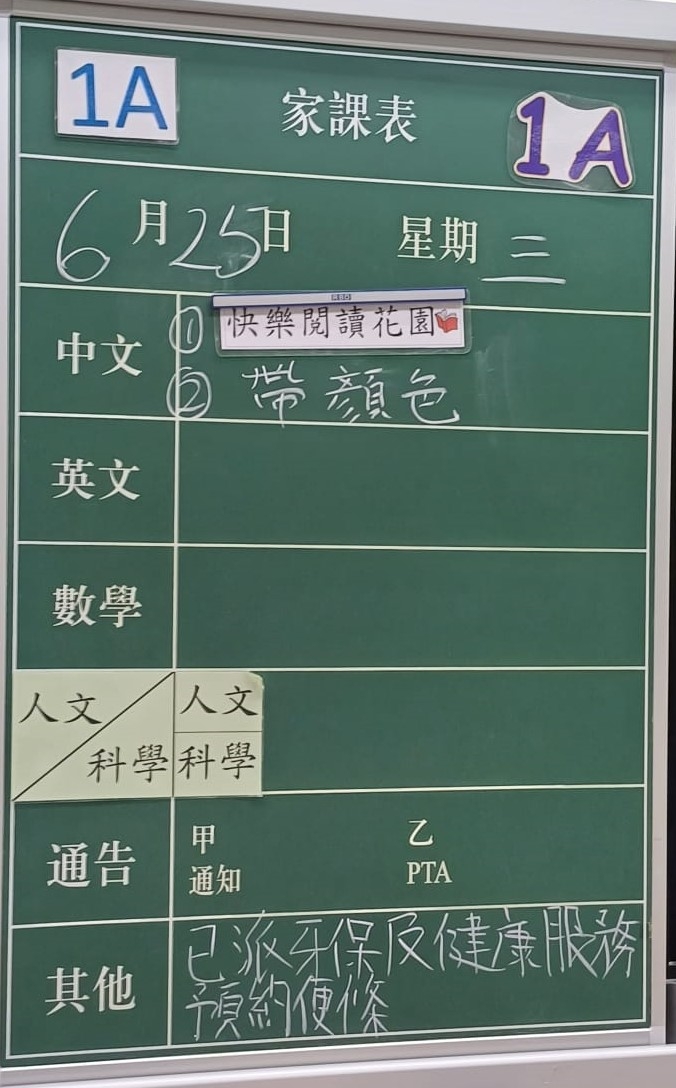 1A 家課表 1A
6月25日 星期三
中文 ① 快樂閱讀花園
② 帶顏色
英文
數學
人文 人文
科學 科學
通告 甲 乙
通知 PTA
其他 已派牙保及健康服務
預約便條